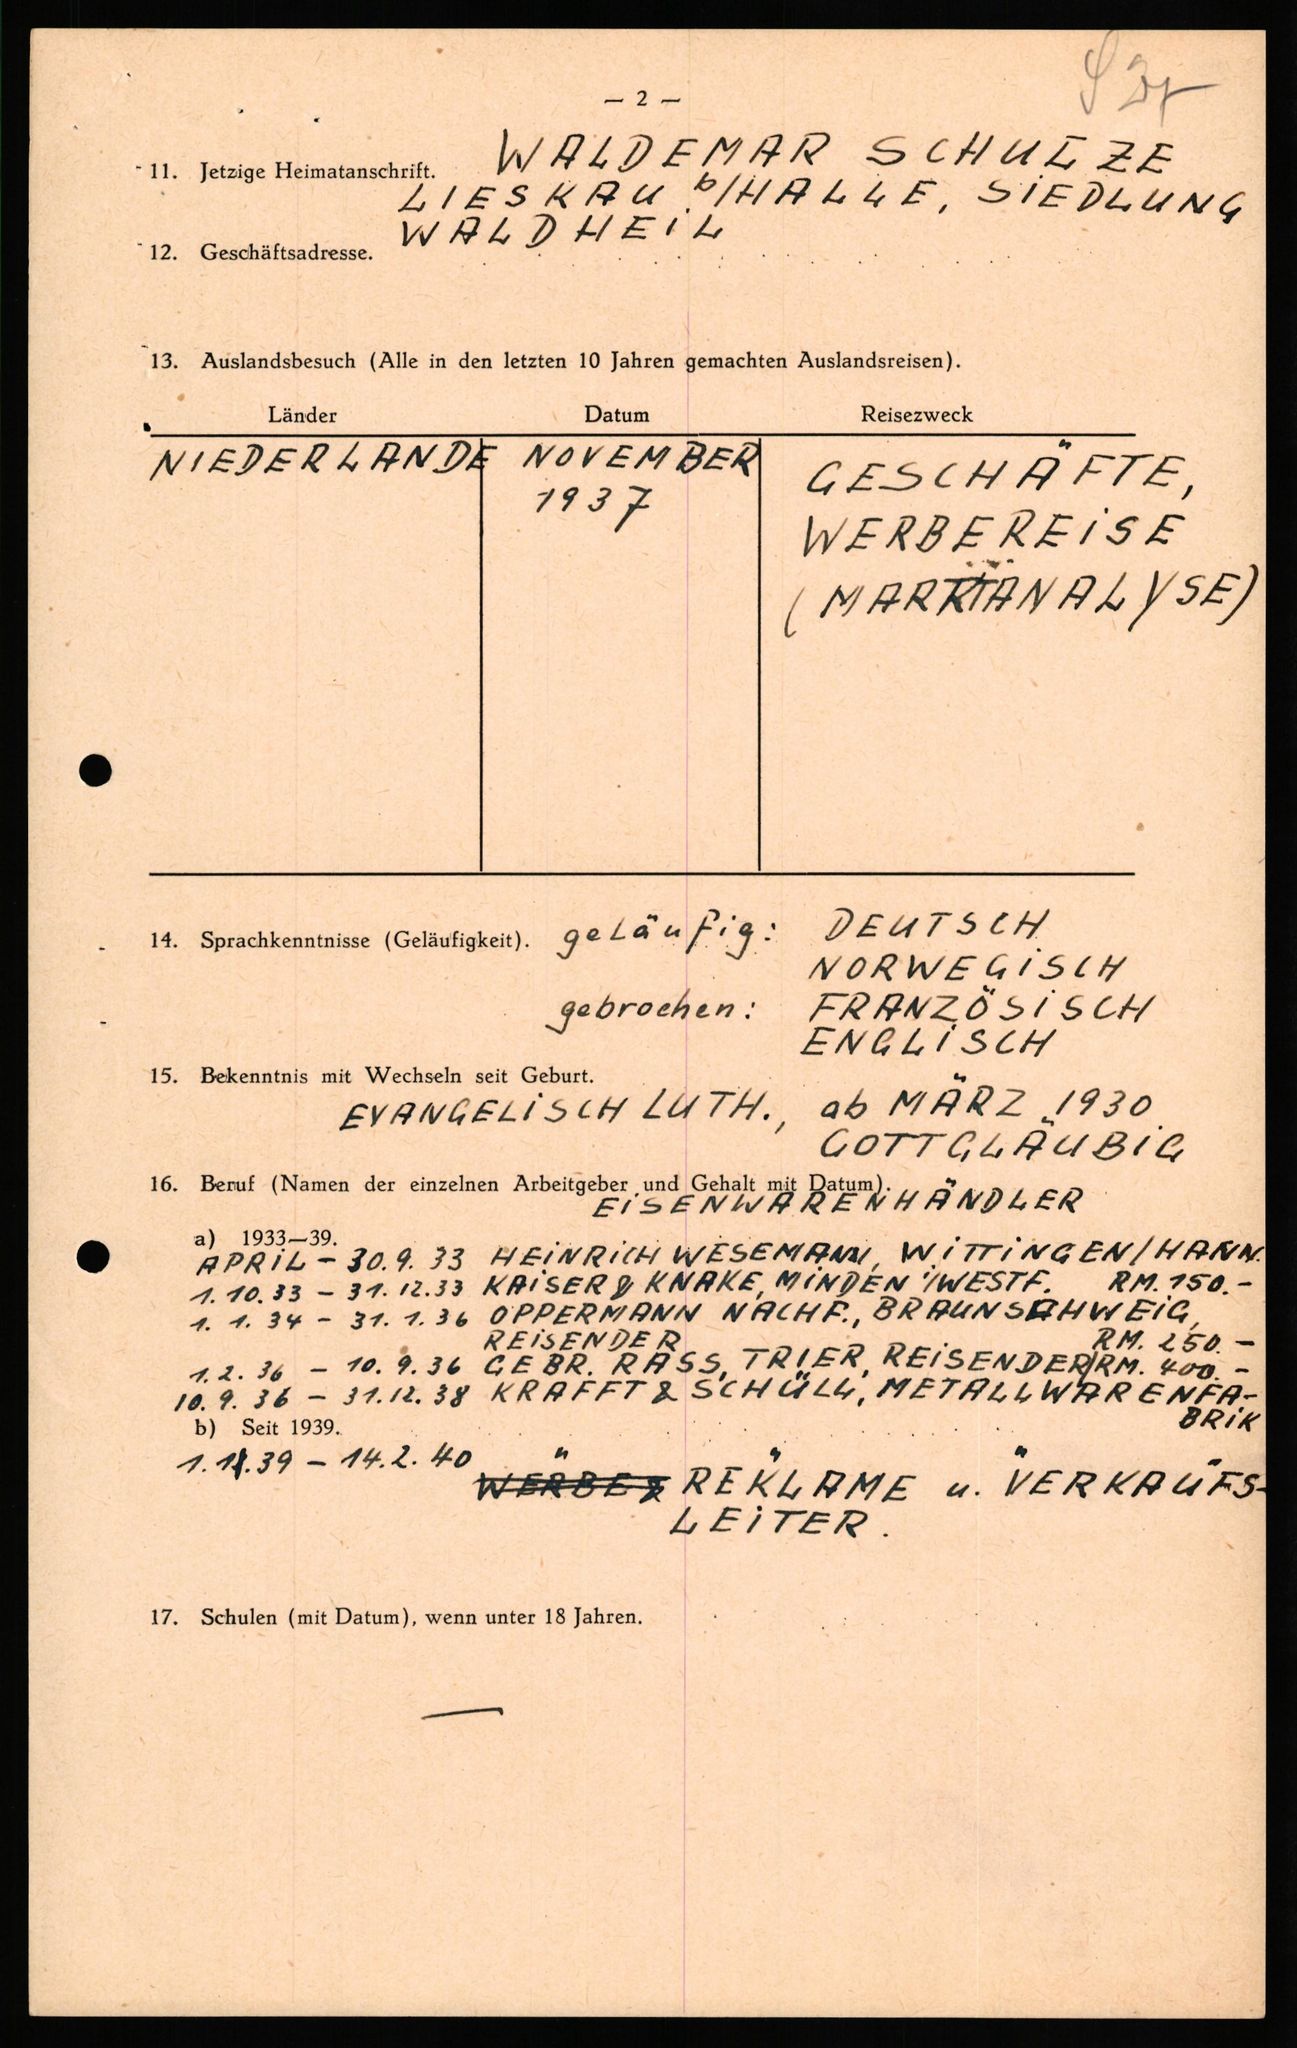 — 2 —
11. Jetzige Heimatanschrift. WALDEMAR SCHULZE
LIESKAU b/HALLE, SIEDLUNG
WALDHEIL
12. Geschäftsadresse.
13. Auslandsbesuch (Alle in den letzten 10 Jahren gemachten Auslandsreisen).
Länder Datum Reisezweck
NIEDERLANDE NOVEMBER 1937 GESCHÄFTE,
WERBEREISE
(MARKTANALYSE)
14. Sprachkenntnisse (Geläufigkeit). geläufig: DEUTSCH
NORWEGISCH
gebrochen: FRANZÖSISCH
ENGLISCH
15. Bekenntnis mit Wechseln seit Geburt.
EVANGELISCH LUTH., ab MÄRZ 1930
GOTTGLÄUBIG
16. Beruf (Namen der einzelnen Arbeitgeber und Gehalt mit Datum).
EISENWARENHÄNDLER
a) 1933—39.
APRIL - 30.9.33 HEINRICH WESEMANN, WITTINGEN/HANN.
1.10.33 - 31.12.33 KAISER & KNAKE, MINDEN i/WESTF. RM. 150.-
1.1.34 - 31.1.36 OPPERMANN NACHF., BRAUNSCHWEIG,
REISENDER RM. 250.-
1.2.36 - 10.9.36 GEBR. RASS, TRIER, REISENDER/RM. 400.-
10.9.36 - 31.12.38 KRAFFT & SCHÜLL, METALLWARENFA-
BRIK
b) Seit 1939.
1.1.39 - 14.2.40
WERBE & REKLAME u. VERKAUFS-
LEITER.
17. Schulen (mit Datum), wenn unter 18 Jahren.
—